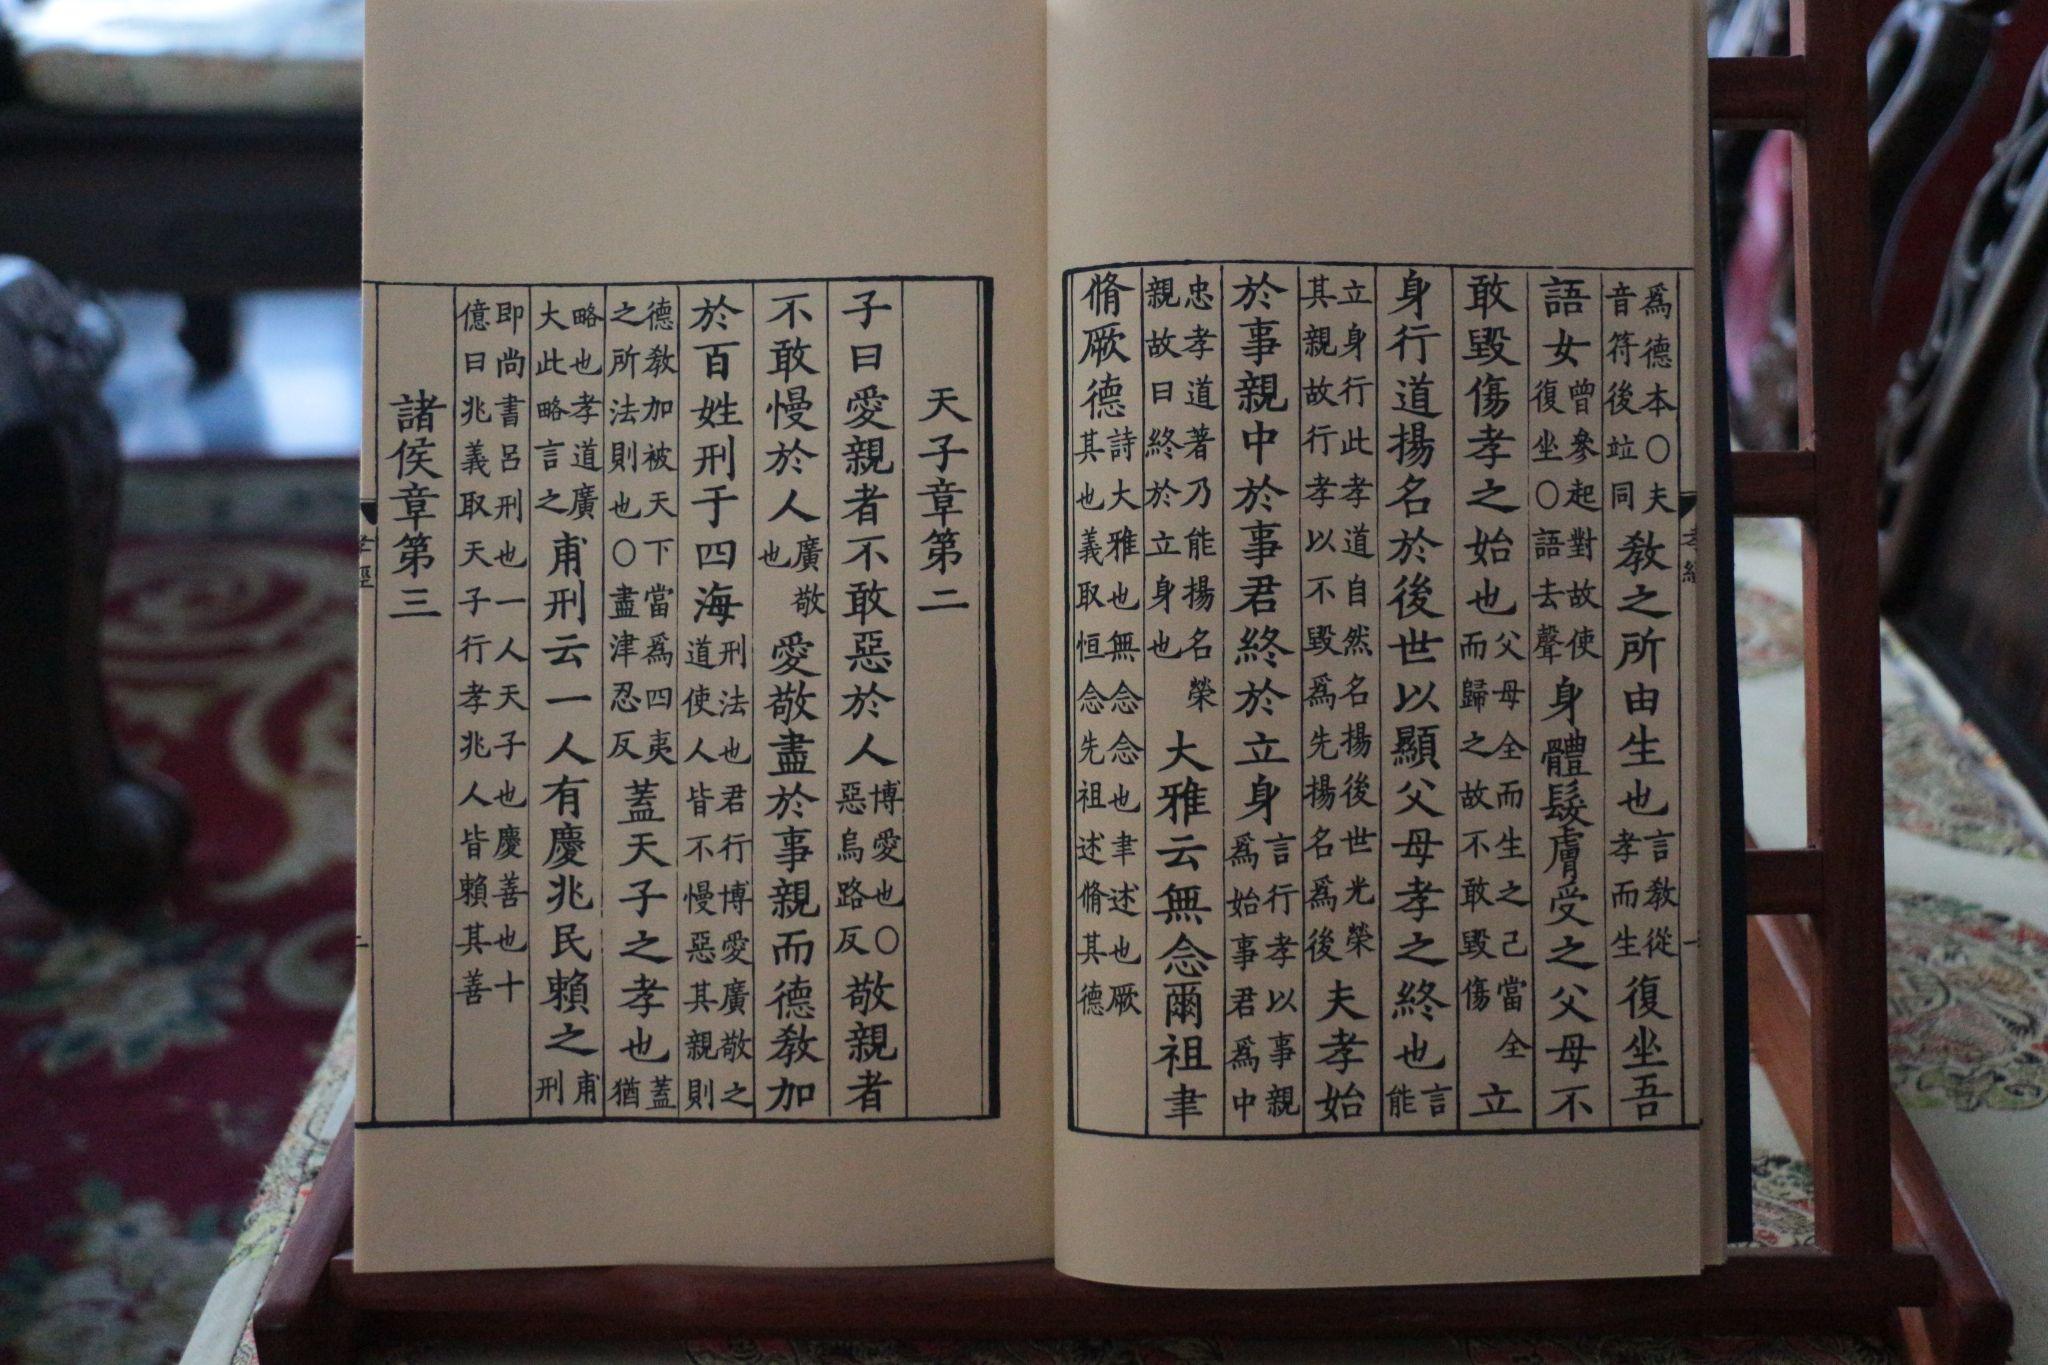 孝經 一
爲德本〇夫音符後竝同教之所由生也言教從孝而生復坐吾
語女曾參起對故使復坐〇語去聲身體髮膚受之父母不
敢毀傷孝之始也父母全而生之己當全而歸之故不敢毀傷立
身行道揚名於後世以顯父母孝之終也言能
立身行此孝道自然名揚後世光榮其親故行孝以不毀爲先揚名爲後夫孝始
於事親中於事君終於立身言行孝以事親爲始事君爲中
忠孝道著乃能揚名榮親故曰終於立身也大雅云無念爾祖聿
脩厥德詩大雅也無念念也聿述也厥其也義取恒念先祖述脩其德
天子章第二
子曰愛親者不敢惡於人博愛也〇惡烏路反敬親者
不敢慢於人廣敬也愛敬盡於事親而德教加
於百姓刑于四海刑法也君行博愛廣敬之道使人皆不慢惡其親則
德教加被天下當爲四夷之所法則也〇盡津忍反蓋天子之孝也蓋猶
略也孝道廣大此略言之甫刑云一人有慶兆民賴之甫刑
即尚書呂刑也一人天子也慶善也十億曰兆義取天子行孝兆人皆賴其善
諸侯章第三
孝經 二